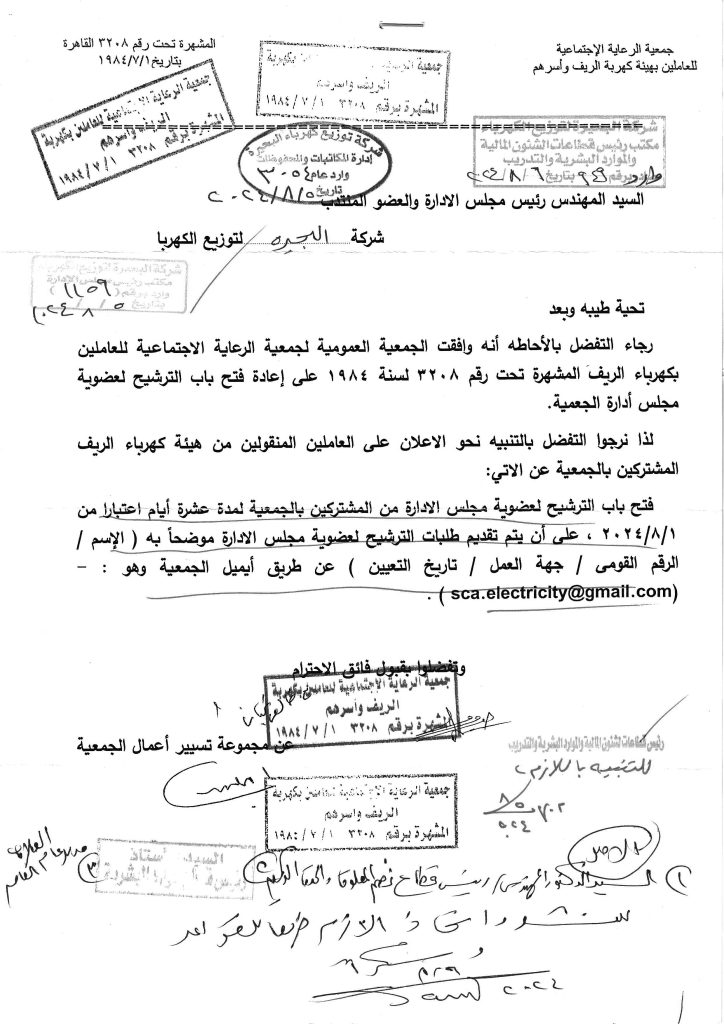 جمعية الرعاية الإجتماعية
للعاملين بهيئة كهربة الريف وأسرهم
المشهرة تحت رقم ٣٢٠٨ القاهرة
بتاريخ ١٩٨٤/٧/١
الريف واسرهم
المشهرة برقم ٣٢٠٨ ١٩٨٤/٧/١
جمعية الرعاية الإجتماعية للعاملين بكهربة
الريف واسرهم
المشهرة برقم ٣٢٠٨ ١٩٨٤/٧/١
شركة توزيع كهرباء البحيرة
إدارة المكاتبات والمحفوظات
وارد عام ٣٠٥٤
تاريخ ٢٠٢٤/٨/٥
شركة البحيرة لتوزيع الكهرباء
مكتب رئيس قطاعات الشئون المالية
والموارد البشرية والتدريب
وارد برقم ٩٤٩ بتاريخ ٢٤/٨/٦
السيد المهندس رئيس مجلس الادارة والعضو المنتدب
شركة البحيره لتوزيع الكهربا
شركة البحيرة لتوزيع
مكتب رئيس مجلس الإدارة
وارد برقم ( ١١٥٩ )
بتاريخ ٢٠٢٤/٨/٥
تحية طيبه وبعد
رجاء التفضل بالأحاطه أنه وافقت الجمعية العمومية لجمعية الرعاية الاجتماعية للعاملين
بكهرباء الريف المشهرة تحت رقم ٣٢٠٨ لسنة ١٩٨٤ على إعادة فتح باب الترشيح لعضوية
مجلس أدارة الجمعية.
لذا نرجوا التفضل بالتنبيه نحو الاعلان على العاملين المنقولين من هيئة كهرباء الريف
المشتركين بالجمعية عن الاتي:
فتح باب الترشيح لعضوية مجلس الادارة من المشتركين بالجمعية لمدة عشرة أيام اعتبارا من
٢٠٢٤/٨/١ ، على أن يتم تقديم طلبات الترشيح لعضوية مجلس الادارة موضحاً به ( الإسم /
الرقم القومى / جهة العمل / تاريخ التعيين ) عن طريق أيميل الجمعية وهو : –
(sca.electricity@gmail.com ) .
وتفضلوا بقبول فائق الاحترام
جمعية الرعاية الإجتماعية للعاملين بكهربة
الريف واسرهم
المشهرة برقم ٣٢٠٨ ١٩٨٤/٧/١
عن مجموعة تسيير أعمال الجمعية
رئيس قطاعات الشئون المالية والموارد البشرية والتدريب
للتنبيه باللازم
جمعية الرعاية الإجتماعية للعاملين بكهربة
الريف واسرهم
المشهرة برقم ٣٢٠٨ ١٩٨٤/٧/١
السيد أستاذ
البشرية
٢٠٢٤